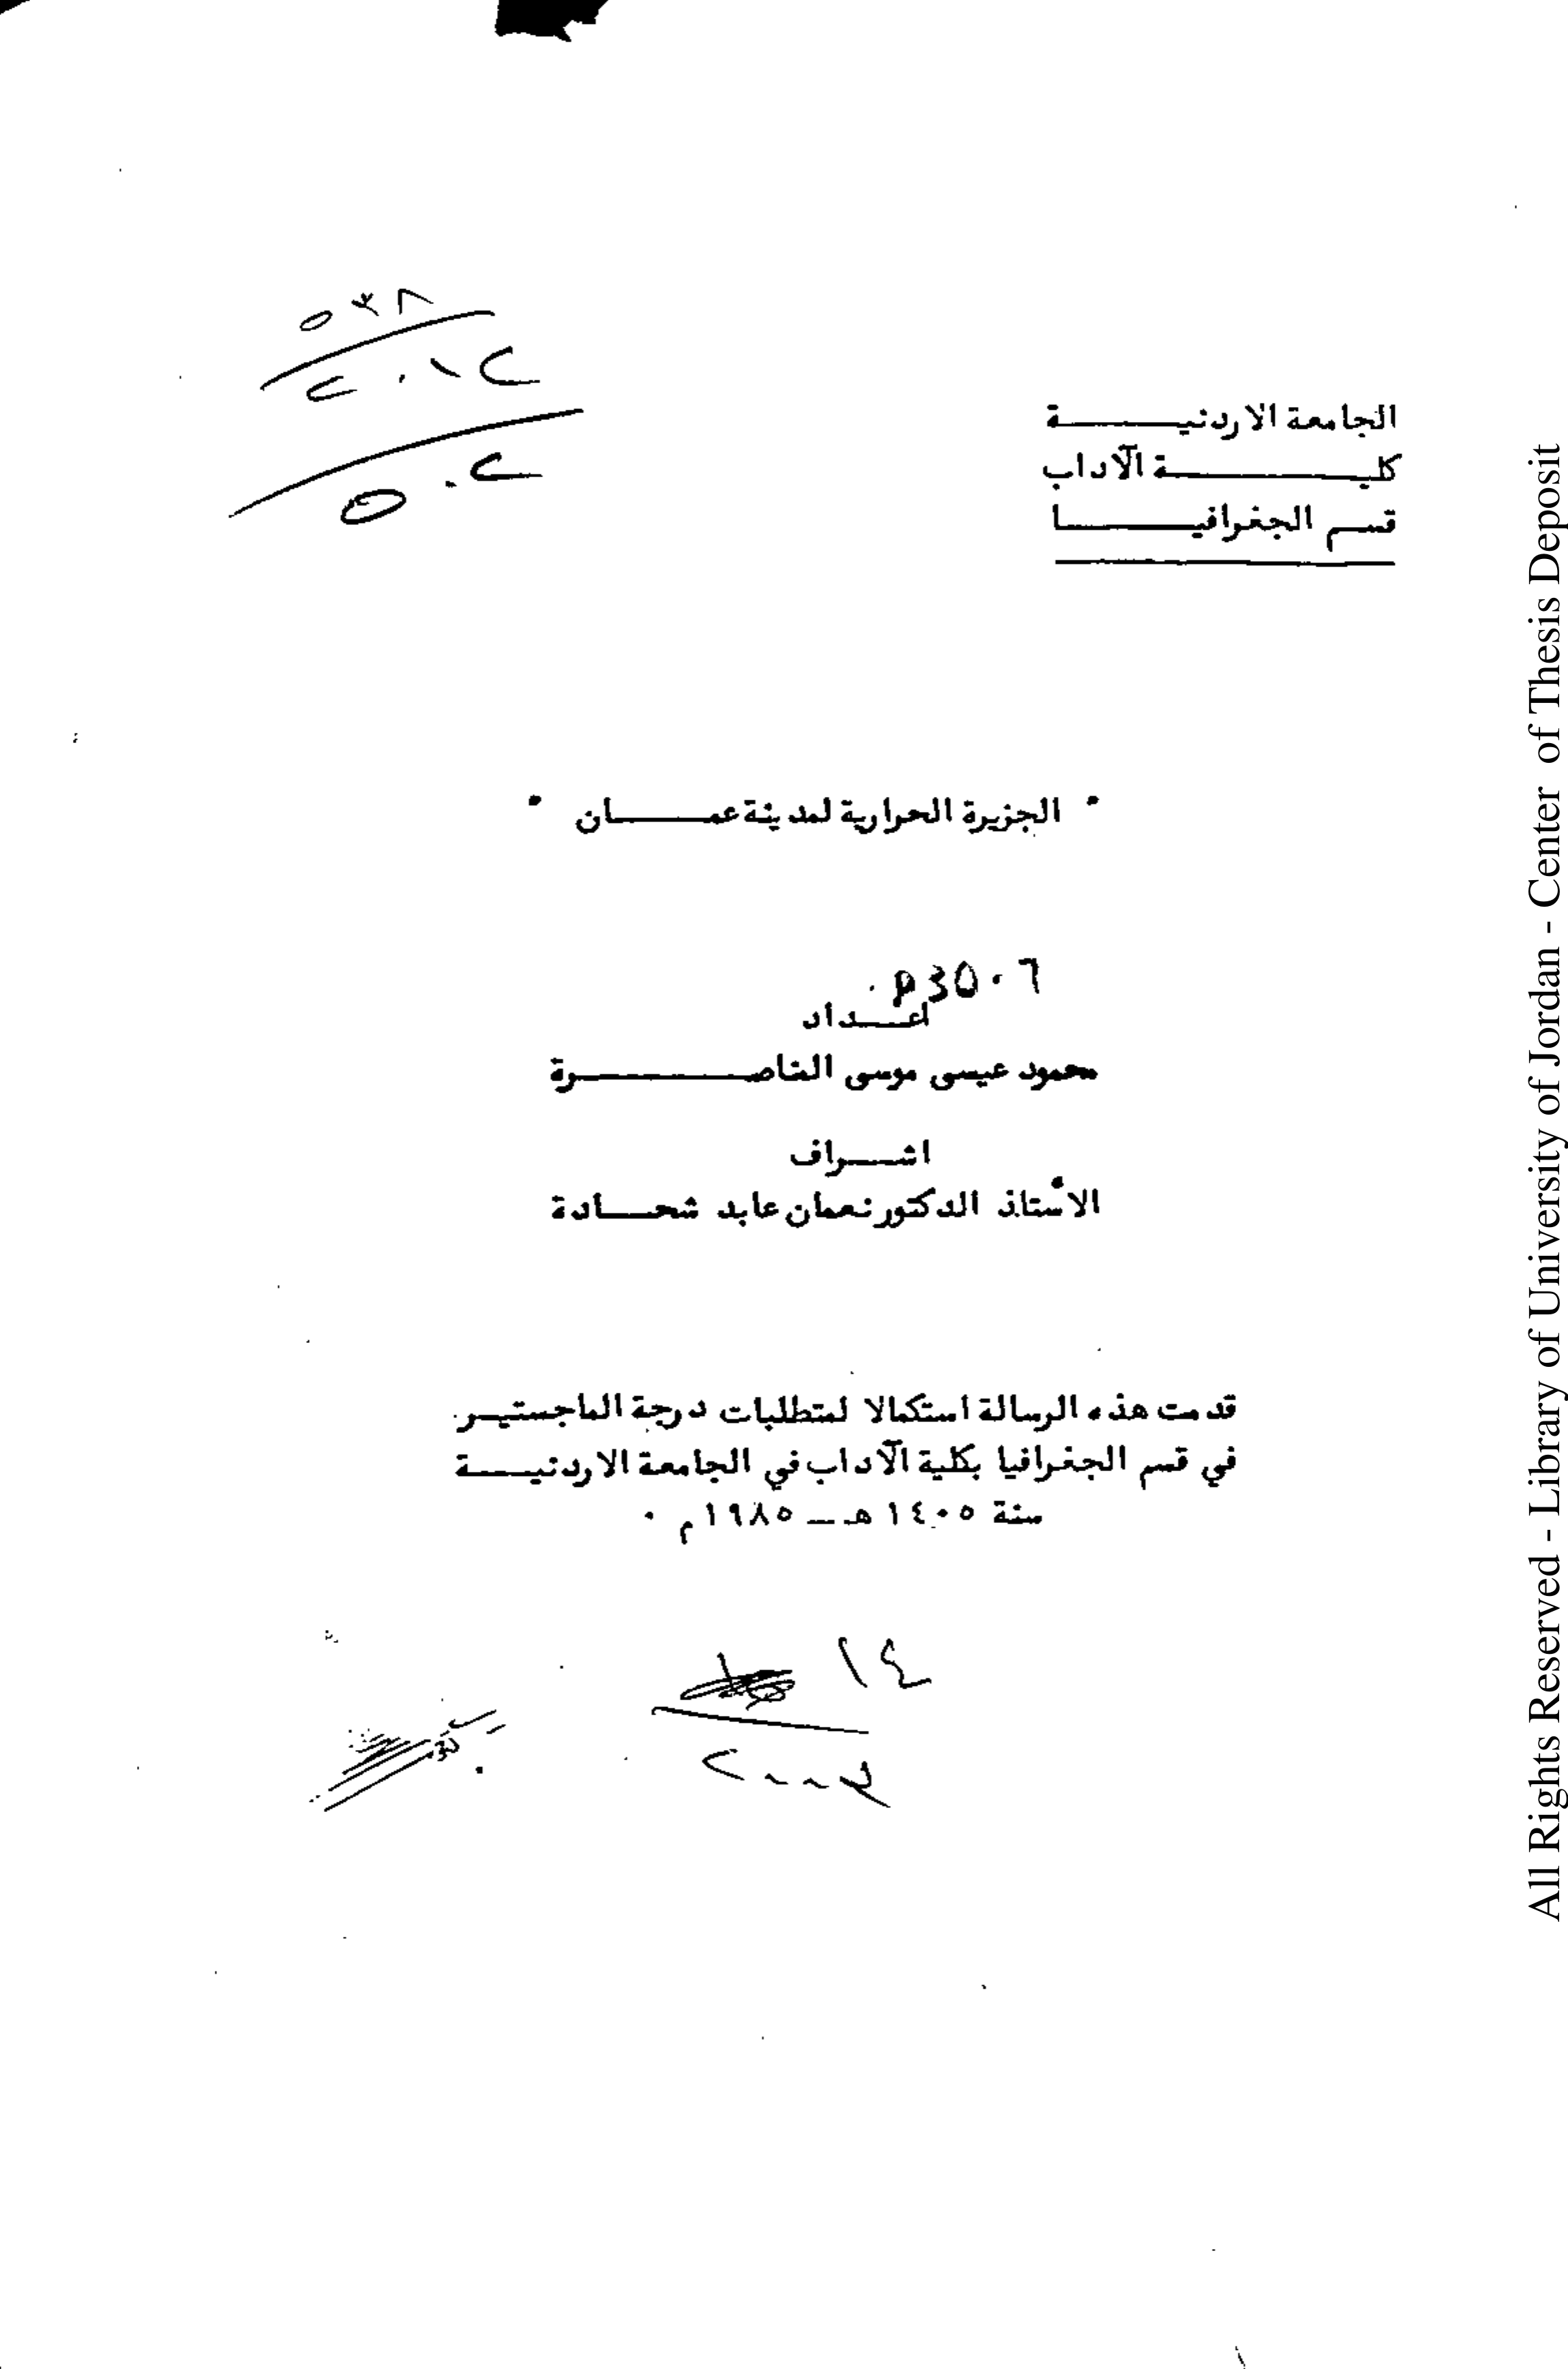 الجامعة الاردنيــــــة
كليــــــــــــة الآداب
قسم الجغرافيــــــا
" الجزيرة الحرارية لمدينة عمـــــان "
اعــداد
محمود عيسى موسى المناصــــــــــرة
اشـــراف
الأستاذ الدكتور نعمان عابد شحـــادة
قدمت هذه الرسالة استكمالا لمتطلبات درجة الماجستيـر
في قسم الجغرافيا بكلية الآداب في الجامعة الاردنيــــة
سنة ١٤٠٥ هـ ــ ١٩٨٥م ٠
All Rights Reserved - Library of University of Jordan - Center of Thesis Deposit